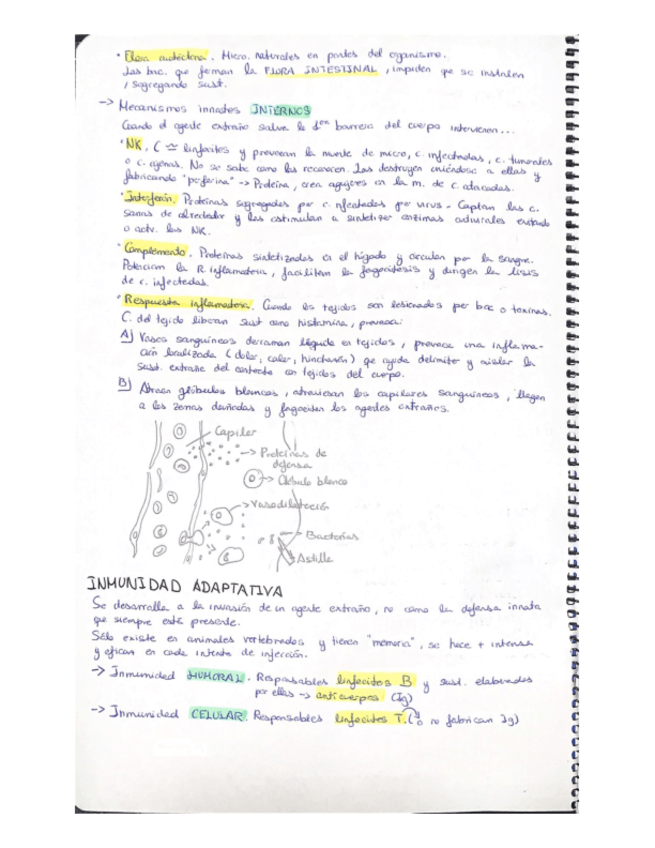 • Flora autóctona. Micro. naturales en partes del organismo.
Las bac. que forman la FLORA INTESTINAL, impiden que se instalen
, segregando sust.
-> Mecanismos innatos INTERNOS
Cuando el agente extraño salva la 1era barrera del cuerpo intervienen...
• NK. C ≃ linfocitos y provocan la muerte de micro, c. infectadas, c. tumorales
o c. ajenas. No se sabe como las reconocen. Las destruyen uniéndose a ellas y
fabricando "perforina" -> Proteína, crea agujeros en la m. de c. atacadas.
• Interferón. Proteínas segregadas por c. infectadas por virus. Captan las c.
sanas de alrededor y las estimulan a sintetizar enzimas antivirales evitando
o activ. las NK.
• Complemento. Proteínas sintetizadas en el hígado y circulan por la sangre.
Potencian la R. inflamatoria, facilitan la fagocitosis y dirigen la lisis
de c. infectadas.
• Respuesta inflamatoria. Cuando los tejidos son lesionados por bac o toxinas.
C. del tejido liberan sust como histamina, provoca:
A) Vasos sanguíneos derraman líquido en tejidos, provoca una inflama-
ción localizada (dolor, calor, hinchazón) que ayuda delimitar y aislar la
sust. extraña del contacto con tejidos del cuerpo.
B) Atraen glóbulos blancos, atraviesan los capilares sanguíneos, llegan
a las zonas dañadas y fagocitan los agentes extraños.
Capilar
-> Proteínas de
defensa
-> Glóbulo blanco
-> Vasodilatación
Bacterias
Astilla
INMUNIDAD ADAPTATIVA
Se desarrolla a la invasión de un agente extraño, no como la defensa innata
que siempre está presente.
Sólo existe en animales vertebrados y tienen "memoria", se hace + intensa
y eficaz en cada intento de infección.
-> Inmunidad HUMORAL. Responsables linfocitos B y sust. elaboradas
por ellos -> anticuerpos (Ig)
-> Inmunidad CELULAR. Responsables linfocitos T. (no fabrican Ig)